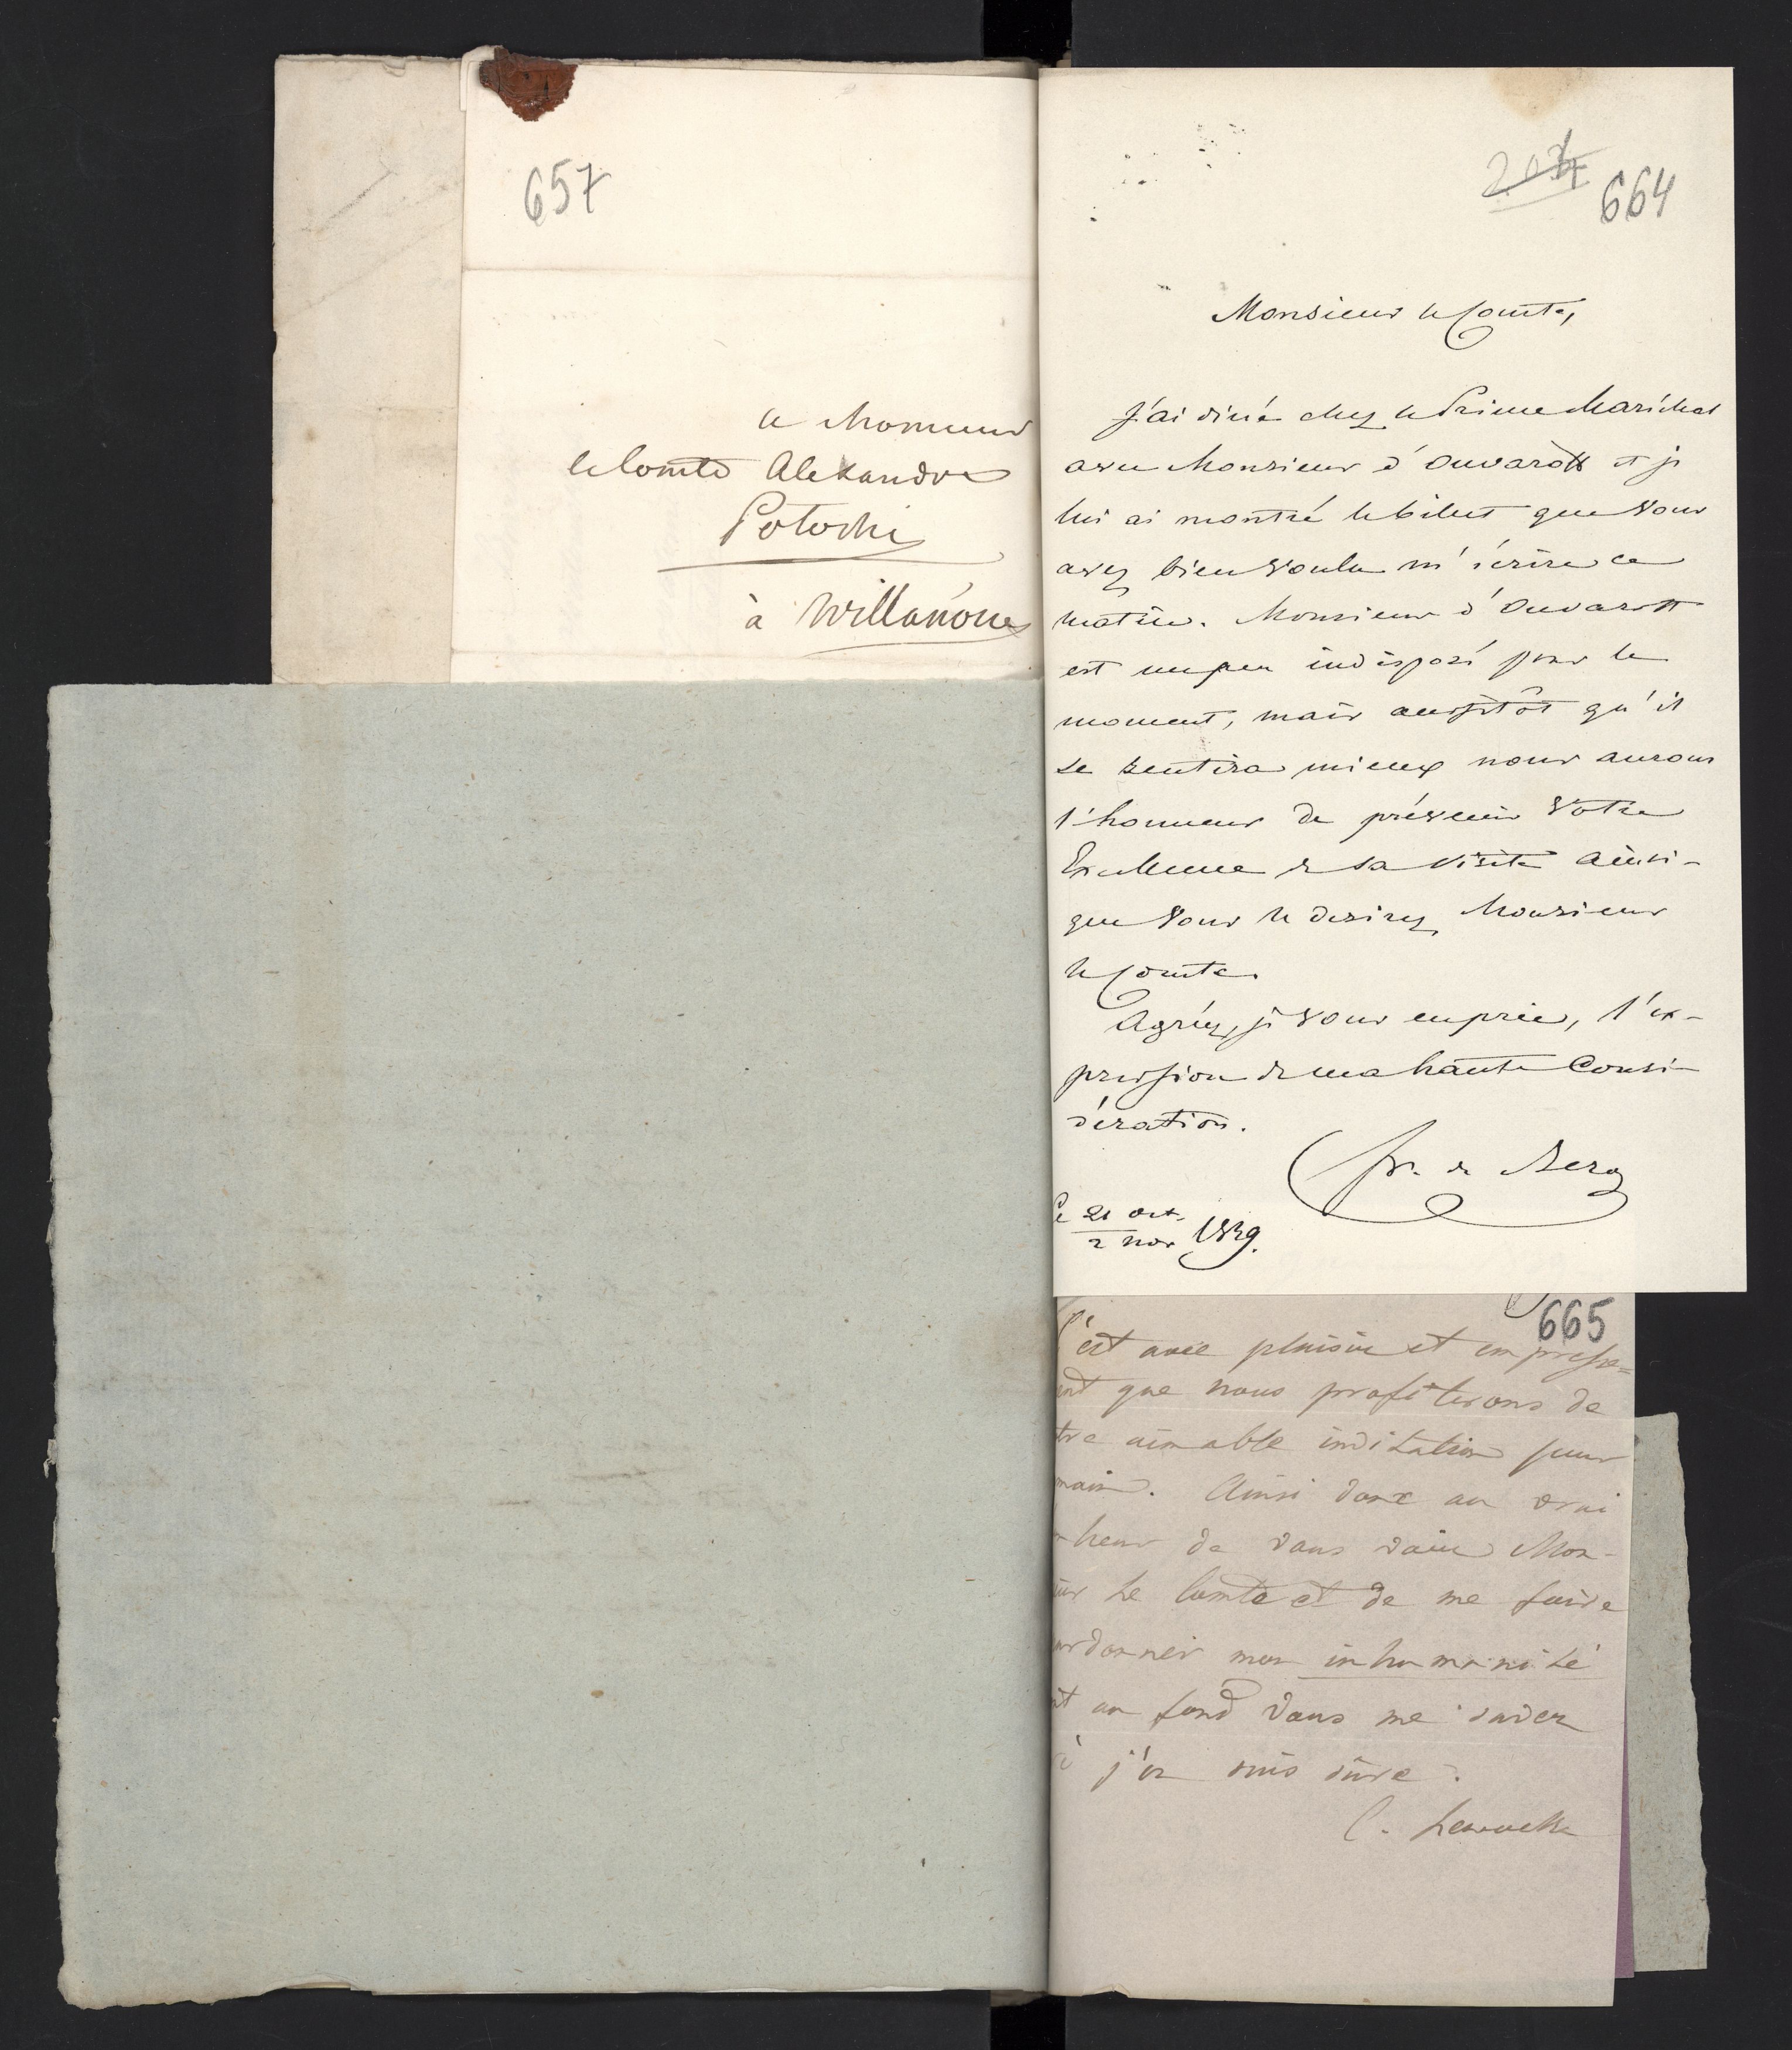 657
a Monsieur
le Comte Alexandre
Potocki
à Willanòw
204
664
Monsieur le Comte,
J'ai diné chez le Prince Maréchal
avec Monsieur d'Ouvaroff et je
lui ai montré le billet que Vous
avez bien Voulu m'écrire ce
matin. Monsieur d'Ouvaroff
est un peu indisposé pour le
moment, mais aussitôt qu'il
se sentira mieux nous aurons
l'honneur de prévenir Votre
Excellence de sa visite ainsi-
que Vous le desirez, Monsieur
le Comte.
Agréez, je Vous en prie, l'ex-
pression de ma haute Consi-
dération.
Fr. de Berg
Le 21 Oct. / 2 Nov 1839.
665
C'est avec plaisir et empresse=
ent que nous profiterons de
tre aimable invitation pour
main. Ainsi donc au vrai
heur de vous voir Mon-
ur le Comte et de me faire
ardonner mon inhumanité
nt au fond vous me savez
é j'en suis sûre.
C.